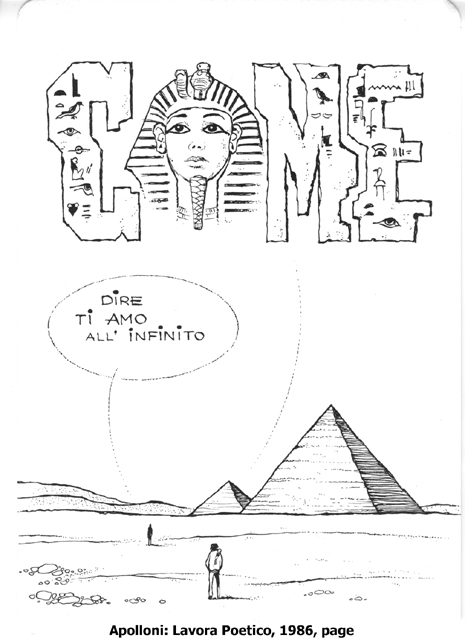 COME
DIRE
Ti AMO
ALL' iNFiNiTO
Apolloni: Lavora Poetico, 1986, page